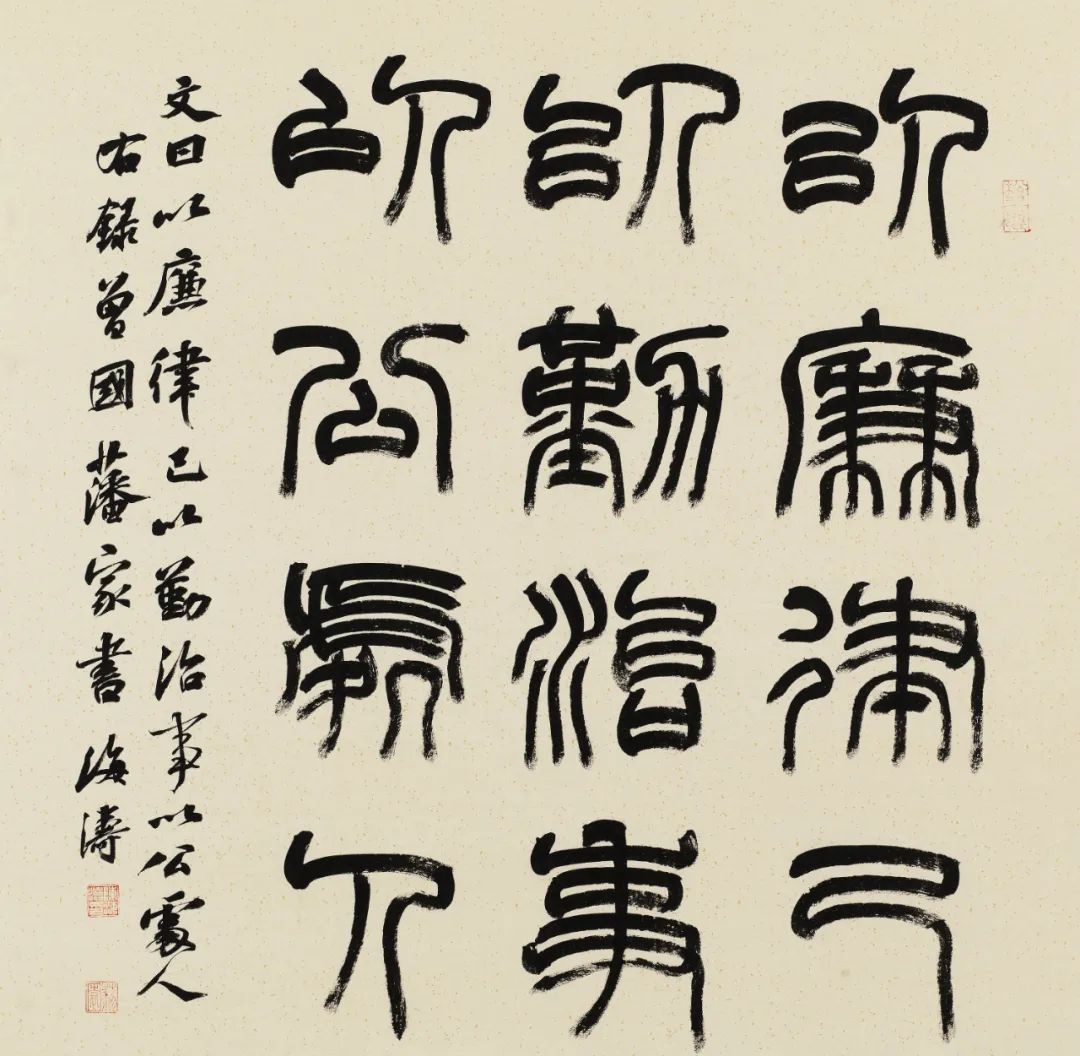 以廉律己
以勤治事
以公處人
文曰以廉律己以勤治事以公處人
右錄曾國藩家書海濤